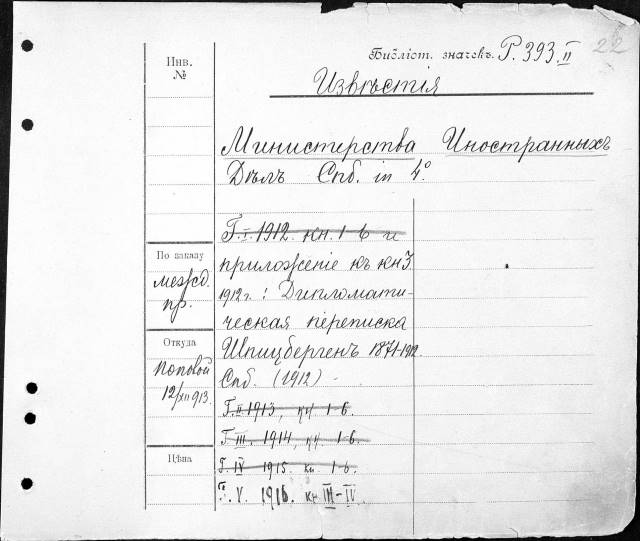 22
Библіот. значекъ. Р. 393. II
Инв.
№
Извѣстія
Министерства Иностранныхъ
Дѣлъ Спб. in 4°.
Г. I. 1912. кн. 1-6 и
По заказу
межд.
пр.
приложеніе къ кн 3.
1912 г.: Дипломати-
ческая переписка
Откуда
Поповой
12/XII 913.
Шпицбергенъ 1871-1912.
Спб. (1912)
Г. II. 1913, кн. 1-6.
Г. III. 1914, кн. 1-6.
Цѣна
Г. IV 1915. кн. 1-6.
Г. V. 1916. кн III-IV.